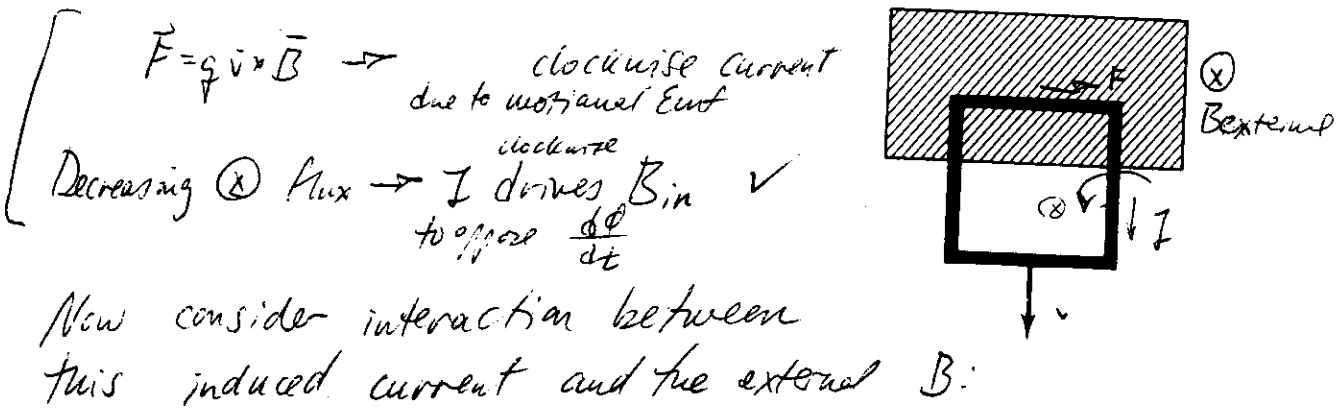 F⃗ = q v⃗ × B⃗ → clockwise current
due to motional Emf
Decreasing ⊗ flux → I drives B_in ✓
clockwise
to oppose dΦ/dt
F
⊗
B external
⊗
I
v
Now consider interaction between
this induced current and the external B: